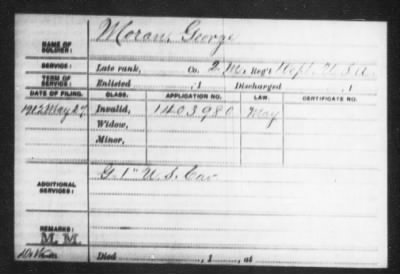 NAME OF SOLDIER: Moran, George
SERVICE: Late rank, Co. 2 M, Reg't Hosp. U.S.A.
TERM OF SERVICE: Enlisted , 1 Discharged , 1
DATE OF FILING. CLASS. APPLICATION NO. LAW. CERTIFICATE NO.
1912 May 27 Invalid, 1403980 May
Widow,
Minor,
ADDITIONAL SERVICES: G. 1" U.S. Cav
REMARKS: M. M.
Died , 1 , at